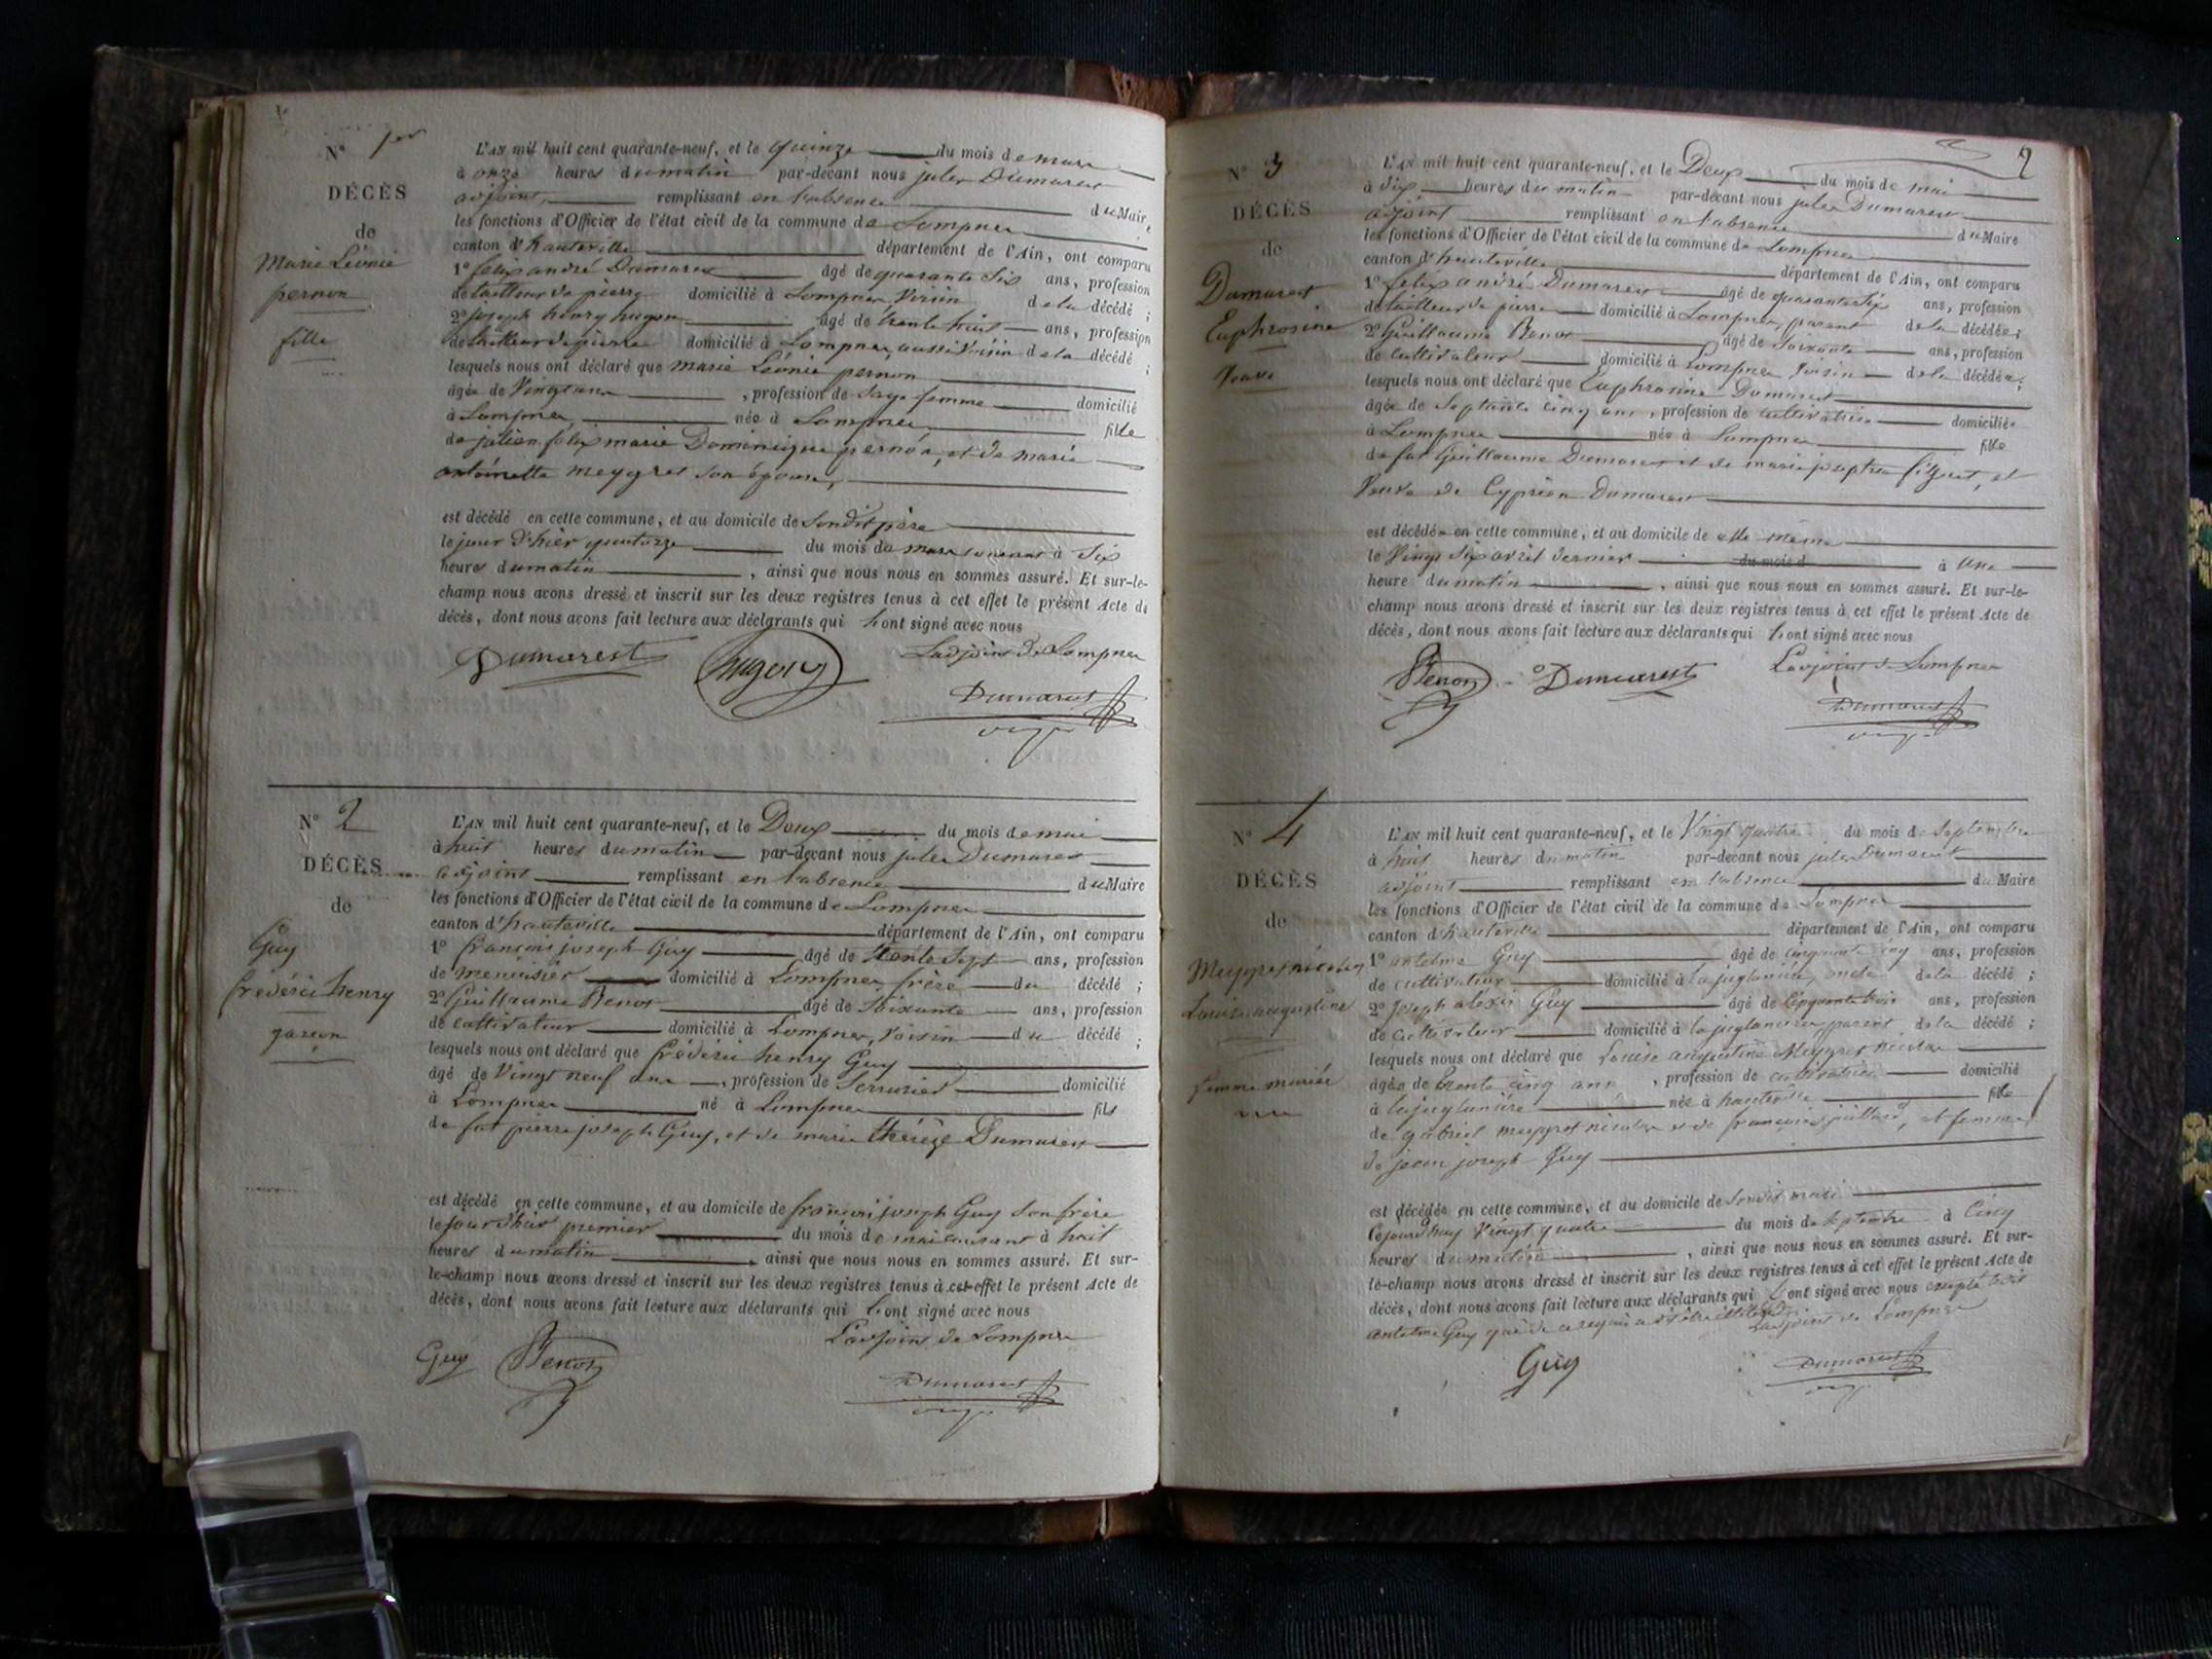 N° 1er
DÉCÈS
de
Marie Léonie
pernon
fille
L'AN mil huit cent quarante-neuf, et le quinze du mois de mars
à onze heures du matin par-devant nous jules Dumarest
adjoint, remplissant en l'absence du Maire,
les fonctions d'Officier de l'état civil de la commune de Lompnes
canton d'hauteville département de l'Ain, ont comparu
1° felix andré Dumarest âgé de quarante six ans, profession
de tailleur de pierre domicilié à Lompnes Voisin de la décédé ;
2° joseph henry hugon âgé de trente huit ans, profession
de tailleur de pierre domicilié à Lompnes, aussi Voisin de la décédé ;
lesquels nous ont déclaré que marie Léonie pernon
âgée de Vingt ans , profession de Sage femme domicilié
à Lompnes, née à Lompnes, fille
de julien felix marie Dominique pernon, et de marie
antoinette meygret son épouse,
est décédé en cette commune, et au domicile de Sondit père
le jour d'hier quatorze du mois de mars courant à Six
heures du matin , ainsi que nous nous en sommes assuré. Et sur-le-
champ nous avons dressé et inscrit sur les deux registres tenus à cet effet le présent Acte de
décès, dont nous avons fait lecture aux déclarants qui l'ont signé avec nous
Dumarest hugon L'adjoint de Lompnes
Dumarest
N° 2
DÉCÈS
de
Guy
frédéric henry
garçon
L'AN mil huit cent quarante-neuf, et le Deux du mois de mai
à huit heures du matin par-devant nous jules Dumarest
adjoint remplissant en l'absence du Maire
les fonctions d'Officier de l'état civil de la commune de Lompnes
canton d'hauteville département de l'Ain, ont comparu
1° françois joseph Guy âgé de trente Sept ans, profession
de menuisier domicilié à Lompnes frère du décédé ;
2° Guillaume Benot âgé de Soixante ans, profession
de cultivateur domicilié à Lompnes, Voisin du décédé ;
lesquels nous ont déclaré que frédéric henry Guy
âgé de Vingt neuf ans , profession de Serrurier domicilié
à Lompnes né à Lompnes fils
de fut pierre joseph Guy, et de marie thérèze Dumarest
est décédé en cette commune, et au domicile de françois joseph Guy Son frère
le jour d'hier premier du mois de mai courant à huit
heures du matin , ainsi que nous nous en sommes assuré. Et sur-
le-champ nous avons dressé et inscrit sur les deux registres tenus à cet effet le présent Acte de
décès, dont nous avons fait lecture aux déclarants qui l'ont signé avec nous
Guy Benot L'adjoint de Lompnes
Dumarest
2
N° 3
DÉCÈS
de
Dumarest
Euphrosine
Veuve
L'AN mil huit cent quarante-neuf, et le Deux du mois de mai
à dix heures du matin par-devant nous jules Dumarest
adjoint remplissant en l'absence du Maire
les fonctions d'Officier de l'état civil de la commune de Lompnes
canton d'hauteville département de l'Ain, ont comparu
1° felix andré Dumarest âgé de quarante Six ans, profession
de tailleur de pierre domicilié à Lompnes, parent de la décédée ;
2° Guillaume Benot âgé de Soixante ans, profession
de cultivateur domicilié à Lompnes Voisin de la décédée ;
lesquels nous ont déclaré que Euphrosine Dumarest
âgée de Septante cinq ans , profession de cultivatrice domiciliée
à Lompnes née à Lompnes fille
de fut Guillaume Dumarest et de marie josephte figuet, et
Veuve de Cyprien Dumarest
est décédée en cette commune, et au domicile de elle même
le Vingt Six avril dernier du mois d à Une
heure du matin , ainsi que nous nous en sommes assuré. Et sur-le-
champ nous avons dressé et inscrit sur les deux registres tenus à cet effet le présent Acte de
décès, dont nous avons fait lecture aux déclarants qui l'ont signé avec nous
Benot Dumarest L'adjoint de Lompnes
Dumarest
N° 4
DÉCÈS
de
Meygret nicolas
Louise augustine
femme mariée
L'AN mil huit cent quarante-neuf, et le Vingt quatre du mois de Septembre
à huit heures du matin par-devant nous jules Dumarest
adjoint remplissant en l'absence du Maire
les fonctions d'Officier de l'état civil de la commune de Lompnes
canton d'hauteville département de l'Ain, ont comparu
1° antelme Guy âgé de cinquante cinq ans, profession
de cultivateur domicilié à la juglanière, oncle de la décédé ;
2° Joseph alexis Guy âgé de Cinquante trois ans, profession
de cultivateur domicilié à la juglanière parent de la décédé ;
lesquels nous ont déclaré que Louise augustine Meygret nicolas
âgée de trente cinq ans , profession de cultivatrice domicilié
à la juglanière née à hauteville fille
de gabriel meygret nicolas et de françoise juillard, et femme
de jean joseph Guy
est décédée en cette commune, et au domicile de Sondit mari
Cejourd'huy Vingt quatre du mois de Septembre à Cinq
heures du matin , ainsi que nous nous en sommes assuré. Et sur-
le-champ nous avons dressé et inscrit sur les deux registres tenus à cet effet le présent Acte de
décès, dont nous avons fait lecture aux déclarants qui l'ont signé avec nous excepté ledit
antelme Guy qui de ce requis
L'adjoint de Lompnes
Guy Dumarest